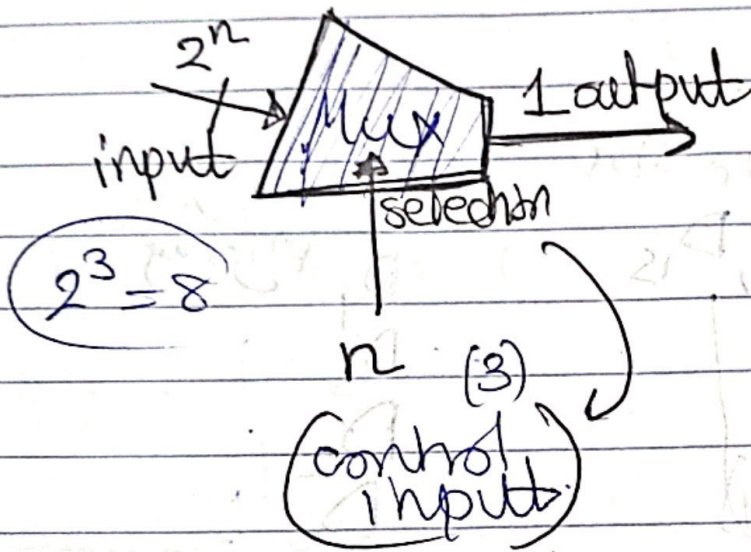 2ⁿ
input
Mux
1 output
selection
2³ = 8
n (3)
(control
inputs)